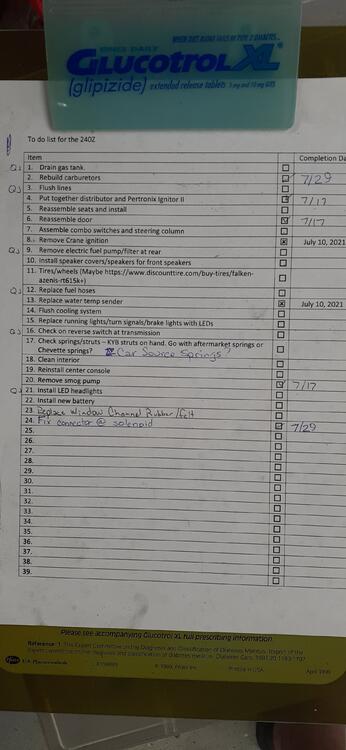 WHEN DIET ALONE FAILS IN TYPE 2 DIABETES...
ONCE DAILY
GLUCOTROL XL®
(glipizide) extended release tablets 5 mg and 10 mg GITS
To do list for the 240Z
Item Completion Da
Q1 1. Drain gas tank.
2. Rebuild carburetors 7/29
Q3 3. Flush lines
4. Put together distributor and Pertronix Ignitor II 7/17
5. Reassemble seats and install
6. Reassemble door 7/17
7. Assemble combo switches and steering column
8. Remove Crane ignition July 10, 2021
9. Remove electric fuel pump/filter at rear
10. Install speaker covers/speakers for front speakers
11. Tires/wheels (Maybe https://www.discounttire.com/buy-tires/falken-
azenis-rt615k+)
12. Replace fuel hoses
13. Replace water temp sender July 10, 2021
14. Flush cooling system
15. Replace running lights/turn signals/brake lights with LEDs
16. Check on reverse switch at transmission
17. Check springs/struts – KYB struts on hand. Go with aftermarket springs or
Chevette springs? Car Source Springs?
18. Clean interior
19. Reinstall center console
20. Remove smog pump 7/17
21. Install LED headlights
22. Install new battery
23. Replace Window Channel Rubber/felt
24. Fix connector @ solenoid 7/29
25.
26.
27.
28.
29.
30.
31.
32.
33.
34.
35.
36.
37.
38.
39.
Please see accompanying Glucotrol XL full prescribing information.
Reference: 1. The Expert Committee on the Diagnosis and Classification of Diabetes Mellitus. Report of the
Expert Committee on the diagnosis and classification of diabetes mellitus. Diabetes Care. 1997;20:1183-1197.
Pfizer U.S. Pharmaceuticals Printed in USA April 1999